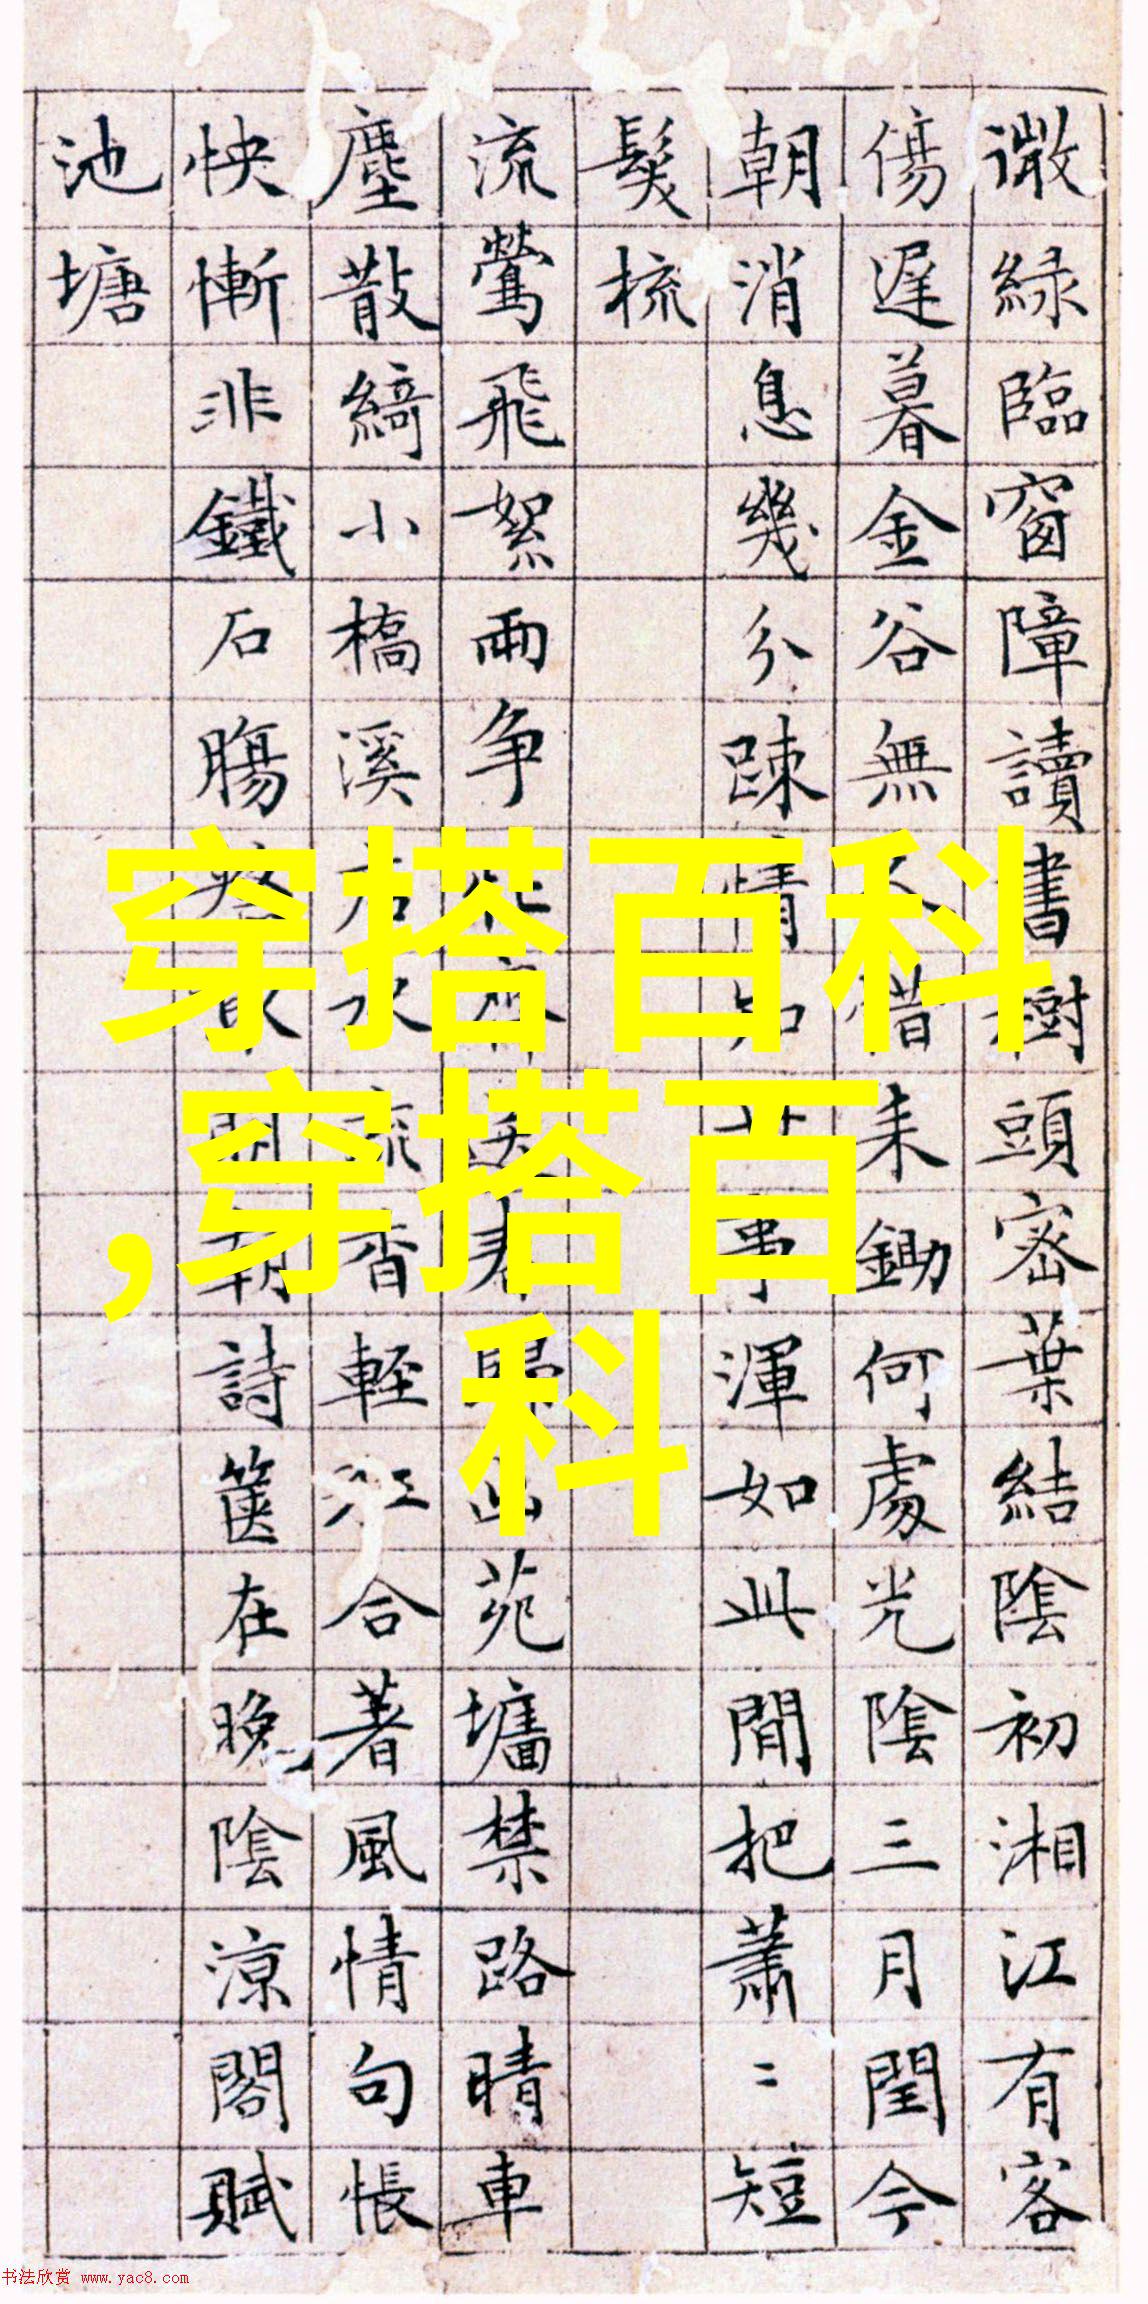 微綠臨窗障讀書樹頭密葉結陰初湘江有客
傷遲暮金谷無借耒鋤何處光陰三月閏今
朝消息幾分踈情渾如此閒把蕭〻短
髮梳
流鶯飛絮兩争春歸苑墻禁路晴車
塵散綺小橋溪右水流香輕江合著風情句悵
怏慚非鐵石腸朝詩篋在晚陰涼閣賦
池塘
穿搭百科
,穿搭百
科
书法欣赏 www.yac8.com